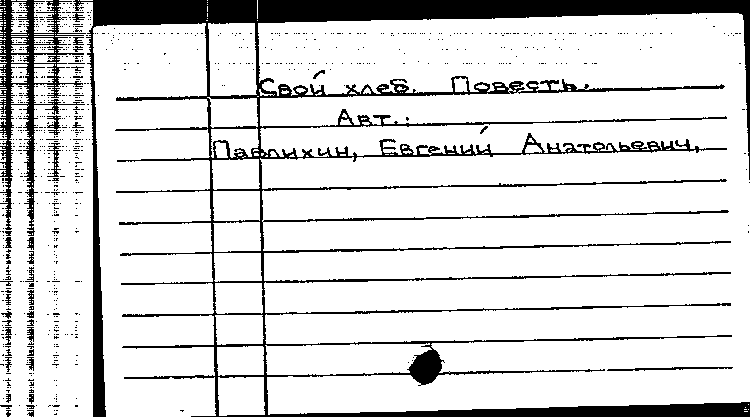 Свой хлеб. Повесть.
Авт.:
Павлихин, Евгений Анатольевич,